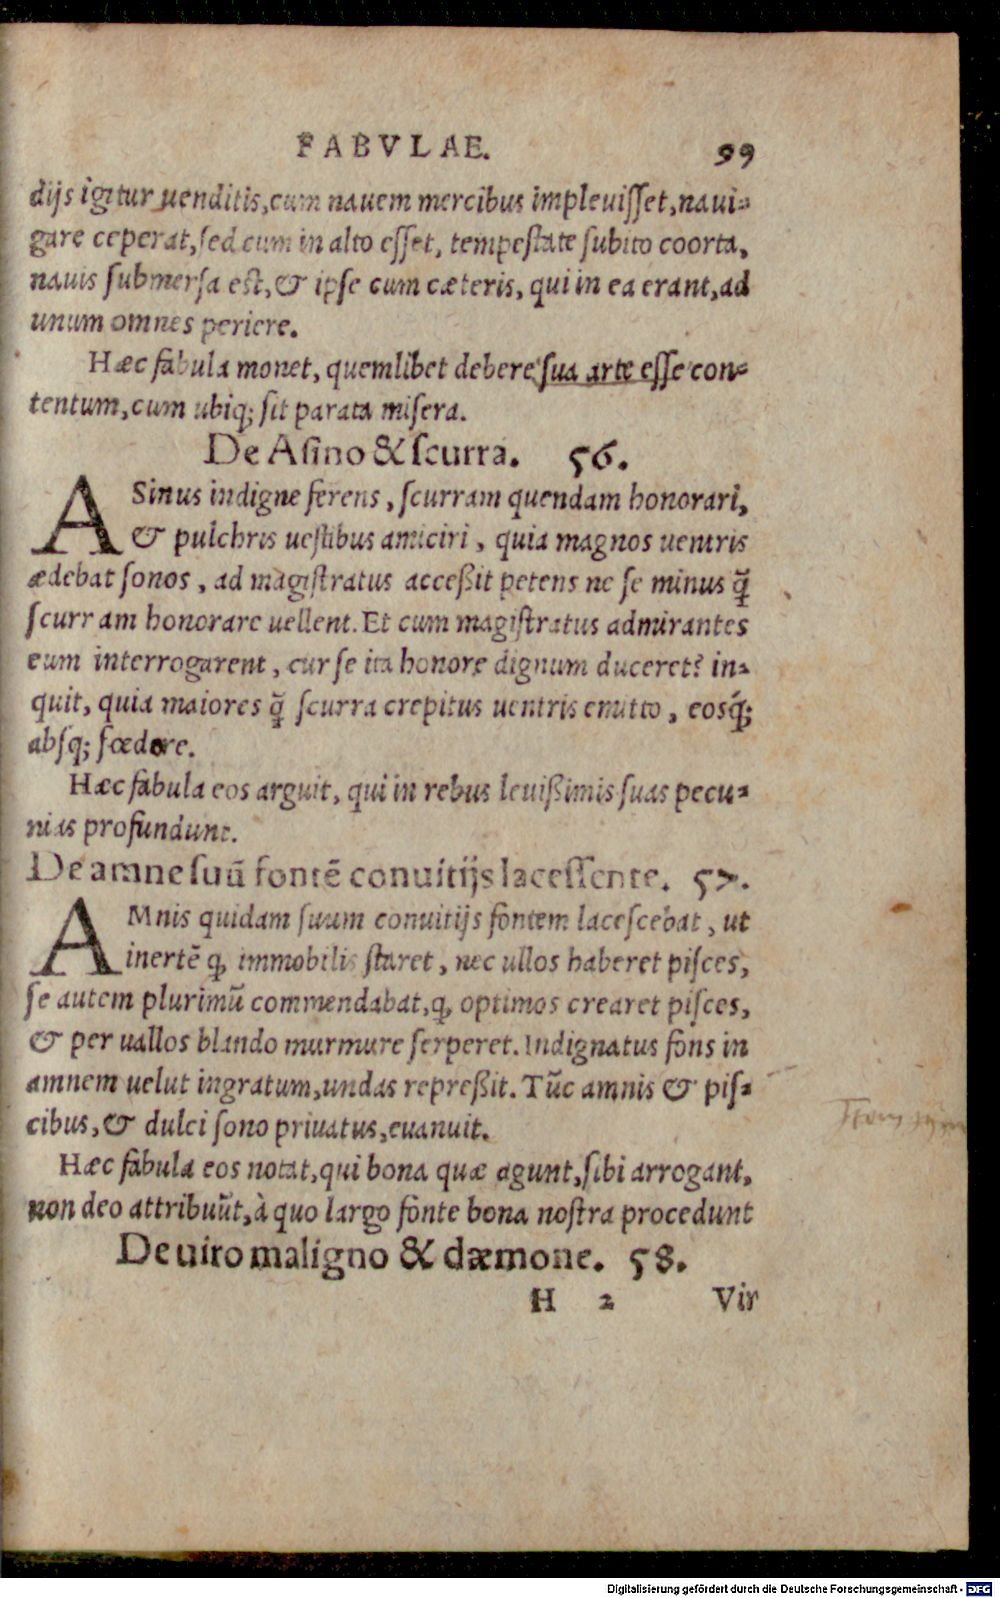 FABVLAE. 99
dijs igitur uenditis, cum nauem mercibus impleuisset, naui-
gare ceperat, sed cum in alto esset, tempestate subito coorta,
nauis submersa est, & ipse cum cæteris, qui in ea erant, ad
unum omnes periere.
Hæc fabula monet, quemlibet debere sua arte esse con-
tentum, cum ubiq; sit parata misera.
De Asino & scurra. 56.
ASinus indigne ferens, scurram quendam honorari,
& pulchris uestibus amiciri, quia magnos uentris
ædebat sonos, ad magistratus acceßit petens ne se minus q̃
scurram honorare uellent. Et cum magistratus admirantes
eum interrogarent, cur se ita honore dignum duceret? in-
quit, quia maiores q̃ scurra crepitus uentris emitto, eosq́;
absq; fœdore.
Hæc fabula eos arguit, qui in rebus leuißimis suas pecu-
nias profundunt.
De amne suũ fontẽ conuitijs lacessente. 57.
AMnis quidam suum conuitijs fontem lacescebat, ut
inertẽ ꝙ immobilis staret, nec ullos haberet pisces,
se autem plurimũ commendabat, ꝙ optimos crearet pisces,
& per uallos blando murmure serperet. Indignatus fons in
amnem uelut ingratum, undas repreßit. Tũc amnis & pis-
cibus, & dulci sono priuatus, euanuit.
Hæc fabula eos notat, qui bona quæ agunt, sibi arrogant,
non deo attribuũt, à quo largo fonte bona nostra procedunt
De uiro maligno & dæmone. 58.
H 2 Vir
Digitalisierung gefördert durch die Deutsche Forschungsgemeinschaft - DFG